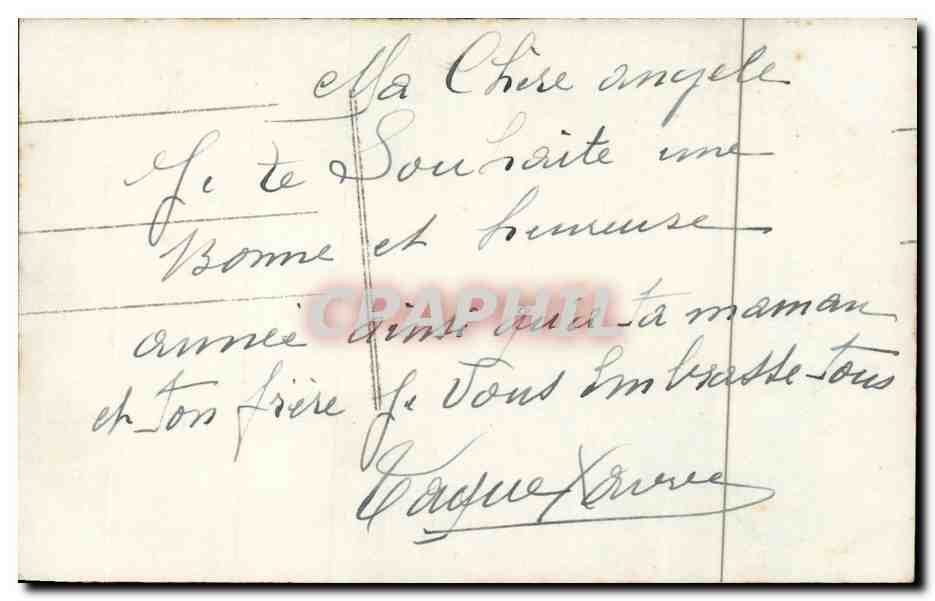 Ma Chère angele
Je te Souhaite une
Bonne et heureuse
année ainsi qu'a ta maman
et ton frère Je Vous Embrasse tous
CPAPHIL